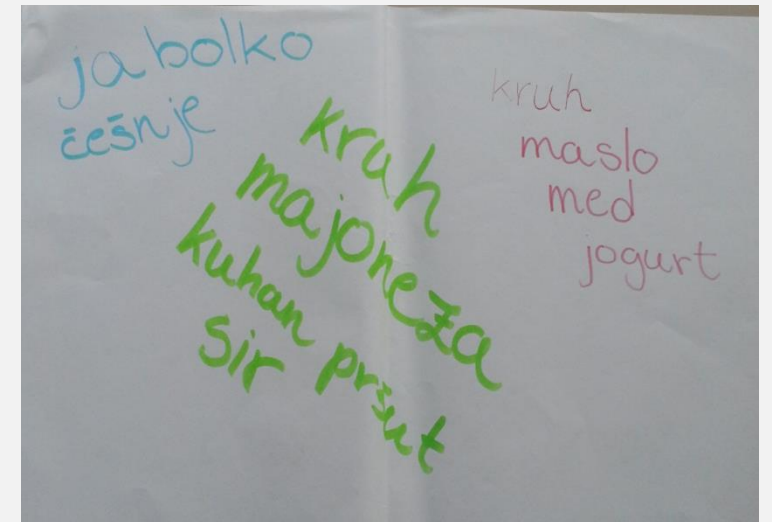 jabolko
češnje
kruh
majoneza
kuhan pršut
sir
kruh
maslo
med
jogurt